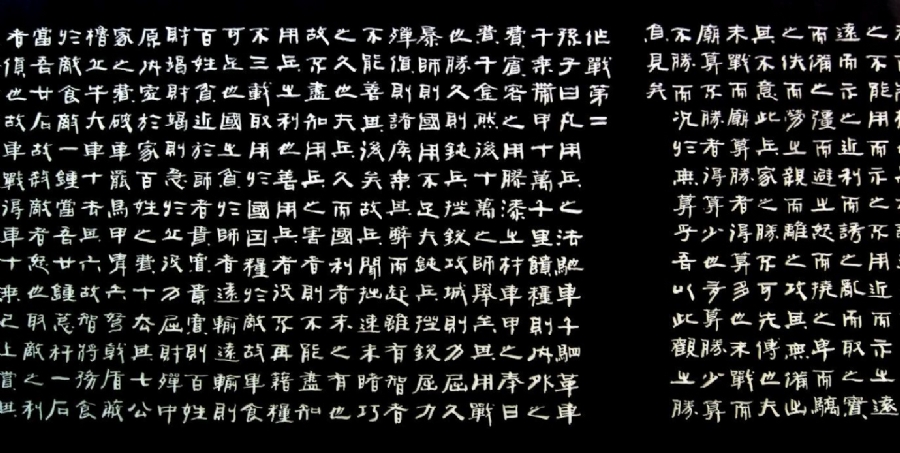 之不能用而示之不用近而示之遠
遠而示之近利而誘之亂而取之實
而備之彊而避之怒而撓之卑而驕
之佚而勞之親而離之攻其無備出
其不意此兵家之勝不可先傳也夫
未戰而廟算勝者得算多也未戰而
廟算不勝者得算少也多算勝少算
不勝而況於無算乎吾以此觀之勝
負見矣
作戰第二
孫子曰凡用兵之法馳車千駟革車
千乘帶甲十萬千里饋糧則內外之
費賓客之用膠漆之材車甲之奉日
費千金然後十萬之師舉矣其用戰
也勝久則鈍兵挫銳攻城則力屈久
暴師則國用不足夫鈍兵挫銳屈力
殫貨則諸侯乘其弊而起雖有智者
不能善其後矣故兵聞拙速未睹巧
之久也夫兵久而國利者未之有也
故不盡知用兵之害者則不能盡知
用兵之利也善用兵者役不再籍糧
不三載取用於國因糧於敵故軍食
可足也國之貧於師者遠輸遠輸則
百姓貧近於師者貴賣貴賣則百姓
財竭財竭則急於丘役力屈財殫中
原內虛於家百姓之費十去其七公
家之費破車罷馬甲冑矢弩戟盾蔽
櫓丘牛大車十去其六故智將務食
於敵食敵一鍾當吾廿鍾萁秆一石
當吾廿石故殺敵者怒也取敵之利
者貨也故車戰得車十乘已上賞其